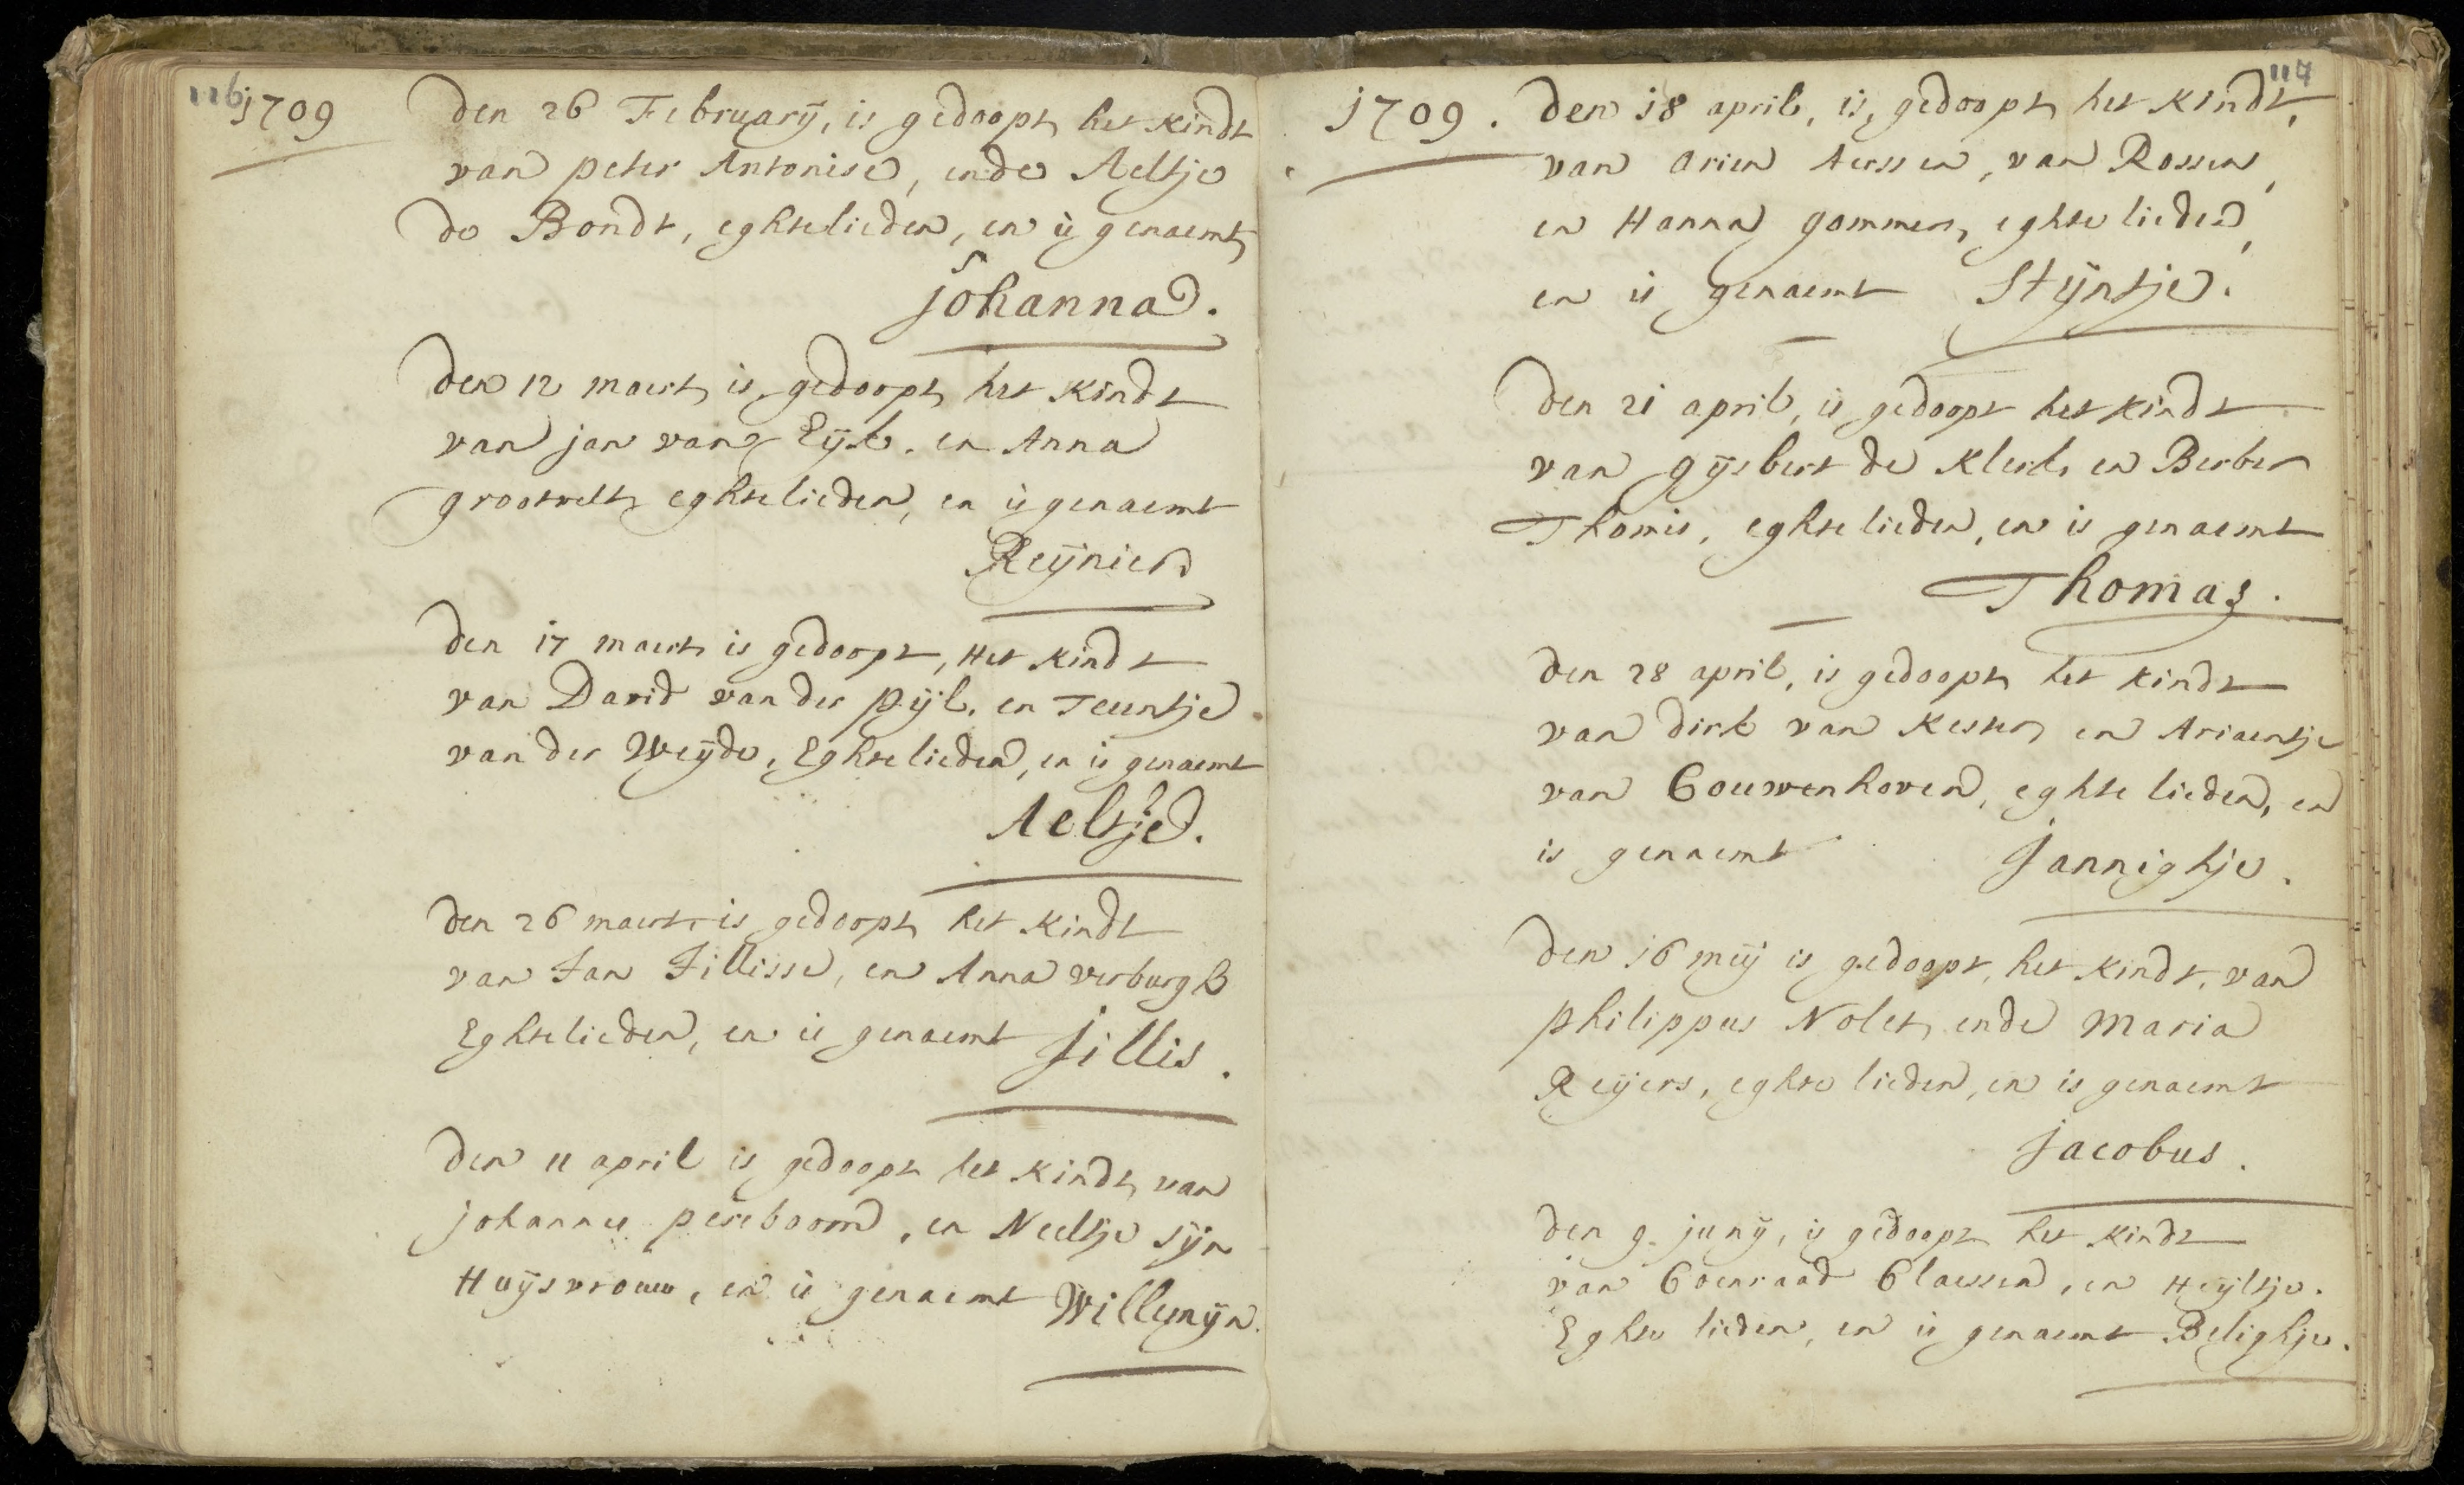 116
1709
den 26 February, is gedoopt het kindt
van peter Antonise, ende Aeltje
de Bondt, eghtelieden, en is genaemt
johanna.
den 12 maert is gedoopt het kindt
van jan van Eijk. en Anna
grootvelt eghtelieden, en is genaemt
Reijnier
den 17 maert is gedoopt, Het kindt
van David van der pijl. en Teuntje
van der Weijde, Eghtelieden, en is genaemt
Aeltje.
den 26 maert is gedoopt het kindt
van Jan Jillisse, en Anna verburgh
Eghtelieden, en is genaemt Jillis.
den 11 april is gedoopt het kindt van
johannes pereboom, en Neeltje sijn
Huijsvrouw, en is genaemt Willemijn.
117
1709. den 18 april, is gedoopt het kindt,
van Arien Aerssen, van Rossen,
en Hanna gommers, eghte lieden,
en is genaemt Stijntje.
den 21 april, is gedoopt het kindt
van gijsbert de Klerk en Berber
Thomis, eghte lieden, en is genaemt
Thomas.
den 28 april, is gedoopt het kindt
van dirk van Kester en Ariaentje
van Couwenhoven, eghte lieden, en
is genaemt Jannighje.
den 16 meij is gedoopt, het kindt, van
philippus Nolet, ende Maria
Reijers, eghte lieden, en is genaemt
Jacobus.
den 9. junij, is gedoopt het kindt
van Coenraad Claessen, en Heijltje.
Eghte lieden, en is genaemt Belighje.